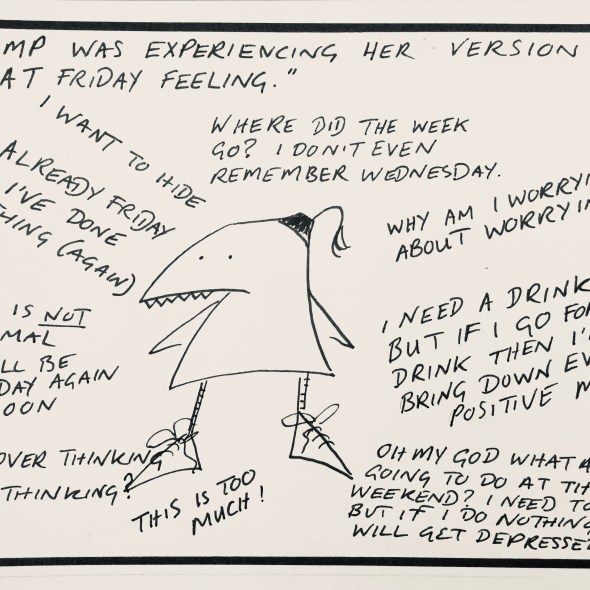 MP WAS EXPERIENCING HER VERSION
AT FRIDAY FEELING."
I WANT TO HIDE
WHERE DID THE WEEK
GO? I DON'T EVEN
REMEMBER WEDNESDAY.
ALREADY FRIDAY
I'VE DONE
THING (AGAIN)
WHY AM I WORRYI
ABOUT WORRYIN
IS NOT
MAL
LL BE
DAY AGAIN
OON
I NEED A DRINK
BUT IF I GO FOR
DRINK THEN I'
BRING DOWN EV
POSITIVE M
OVER THINKING
THINKING?
THIS IS TOO
MUCH!
OH MY GOD WHAT A
GOING TO DO AT TH
WEEKEND? I NEED TO
BUT IF I DO NOTHING
WILL GET DEPRESSED